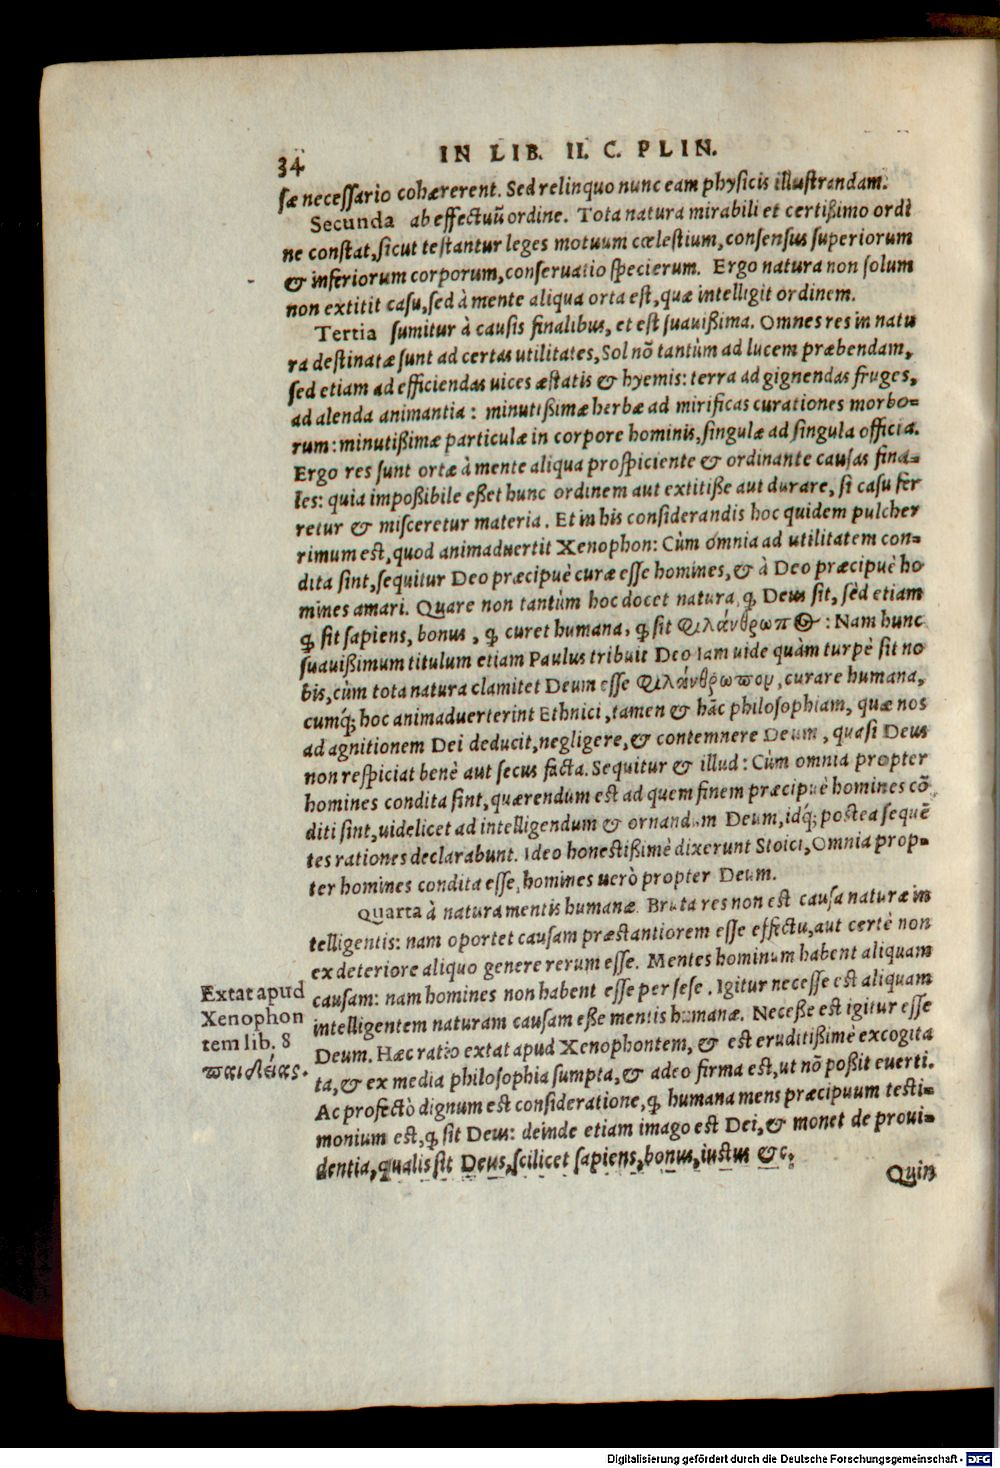 34 IN LIB. II. C. PLIN.
sæ necessario cohærerent. Sed relinquo nunc eam physicis illustrandam.
Secunda ab effectuũ ordine. Tota natura mirabili et certißimo ordi
ne constat, sicut testantur leges motuum cœlestium, consensus superiorum
& inferiorum corporum, conseruatio specierum. Ergo natura non solum
non extitit casu, sed à mente aliqua orta est, quæ intelligit ordinem.
Tertia sumitur à causis finalibus, et est suauißima. Omnes res in natu
ra destinatæ sunt ad certas utilitates, Sol nõ tantùm ad lucem præbendam,
sed etiam ad efficiendas uices æstatis & hyemis: terra ad gignendas fruges,
ad alenda animantia: minutißimæ herbæ ad mirificas curationes morbo-
rum: minutißimæ particulæ in corpore hominis, singulæ ad singula officia.
Ergo res sunt ortæ à mente aliqua prospiciente & ordinante causas fina-
les: quia impoßibile eßet hunc ordinem aut extitiße aut durare, si casu fer
retur & misceretur materia. Et in his considerandis hoc quidem pulcher
rimum est, quod animaduertit Xenophon: Cùm omnia ad utilitatem con-
dita sint, sequitur Deo præcipuè curæ esse homines, & à Deo præcipuè ho
mines amari. Quare non tantùm hoc docet natura, q̃ Deus sit, sed etiam
q̃ sit sapiens, bonus, q̃ curet humana, q̃ sit φιλάνθρωπος: Nam hunc
suauißimum titulum etiam Paulus tribuit Deo Iam uide quàm turpè sit no
bis, cùm tota natura clamitet Deum esse φιλάνθρωπον, curare humana,
cumq́; hoc animaduerterint Ethnici, tamen & hãc philosophiam, quæ nos
ad agnitionem Dei deducit, negligere, & contemnere Deum, quasi Deus
non respiciat benè aut secus facta. Sequitur & illud: Cùm omnia propter
homines condita sint, quærendum est ad quem finem præcipuè homines cõ
diti sint, uidelicet ad intelligendum & ornandum Deum, idq́; postea sequẽ
tes rationes declarabunt. Ideo honestißimè dixerunt Stoici, Omnia prop-
ter homines condita esse, homines uerò propter Deum.
Quarta à natura mentis humanæ. Bruta res non est causa naturæ in
telligentis: nam oportet causam præstantiorem esse effectu, aut certè non
ex deteriore aliquo genere rerum esse. Mentes hominum habent aliquam
causam: nam homines non habent esse per sese. Igitur necesse est aliquam
intelligentem naturam causam eße mentis humanæ. Neceße est igitur esse
Deum. Hæc ratio extat apud Xenophontem, & est eruditißimè excogita
ta, & ex media philosophia sumpta, & adeo firma est, ut nõ poßit euerti.
Ac profectò dignum est consideratione, q̃ humana mens præcipuum testi-
monium est, q̃ sit Deus: deinde etiam imago est Dei, & monet de proui-
dentia, qualis sit Deus, scilicet sapiens, bonus, iustus &c.
Quin
Extat apud
Xenophon
tem lib. 8
παιδείας.
Digitalisierung gefördert durch die Deutsche Forschungsgemeinschaft - DFG